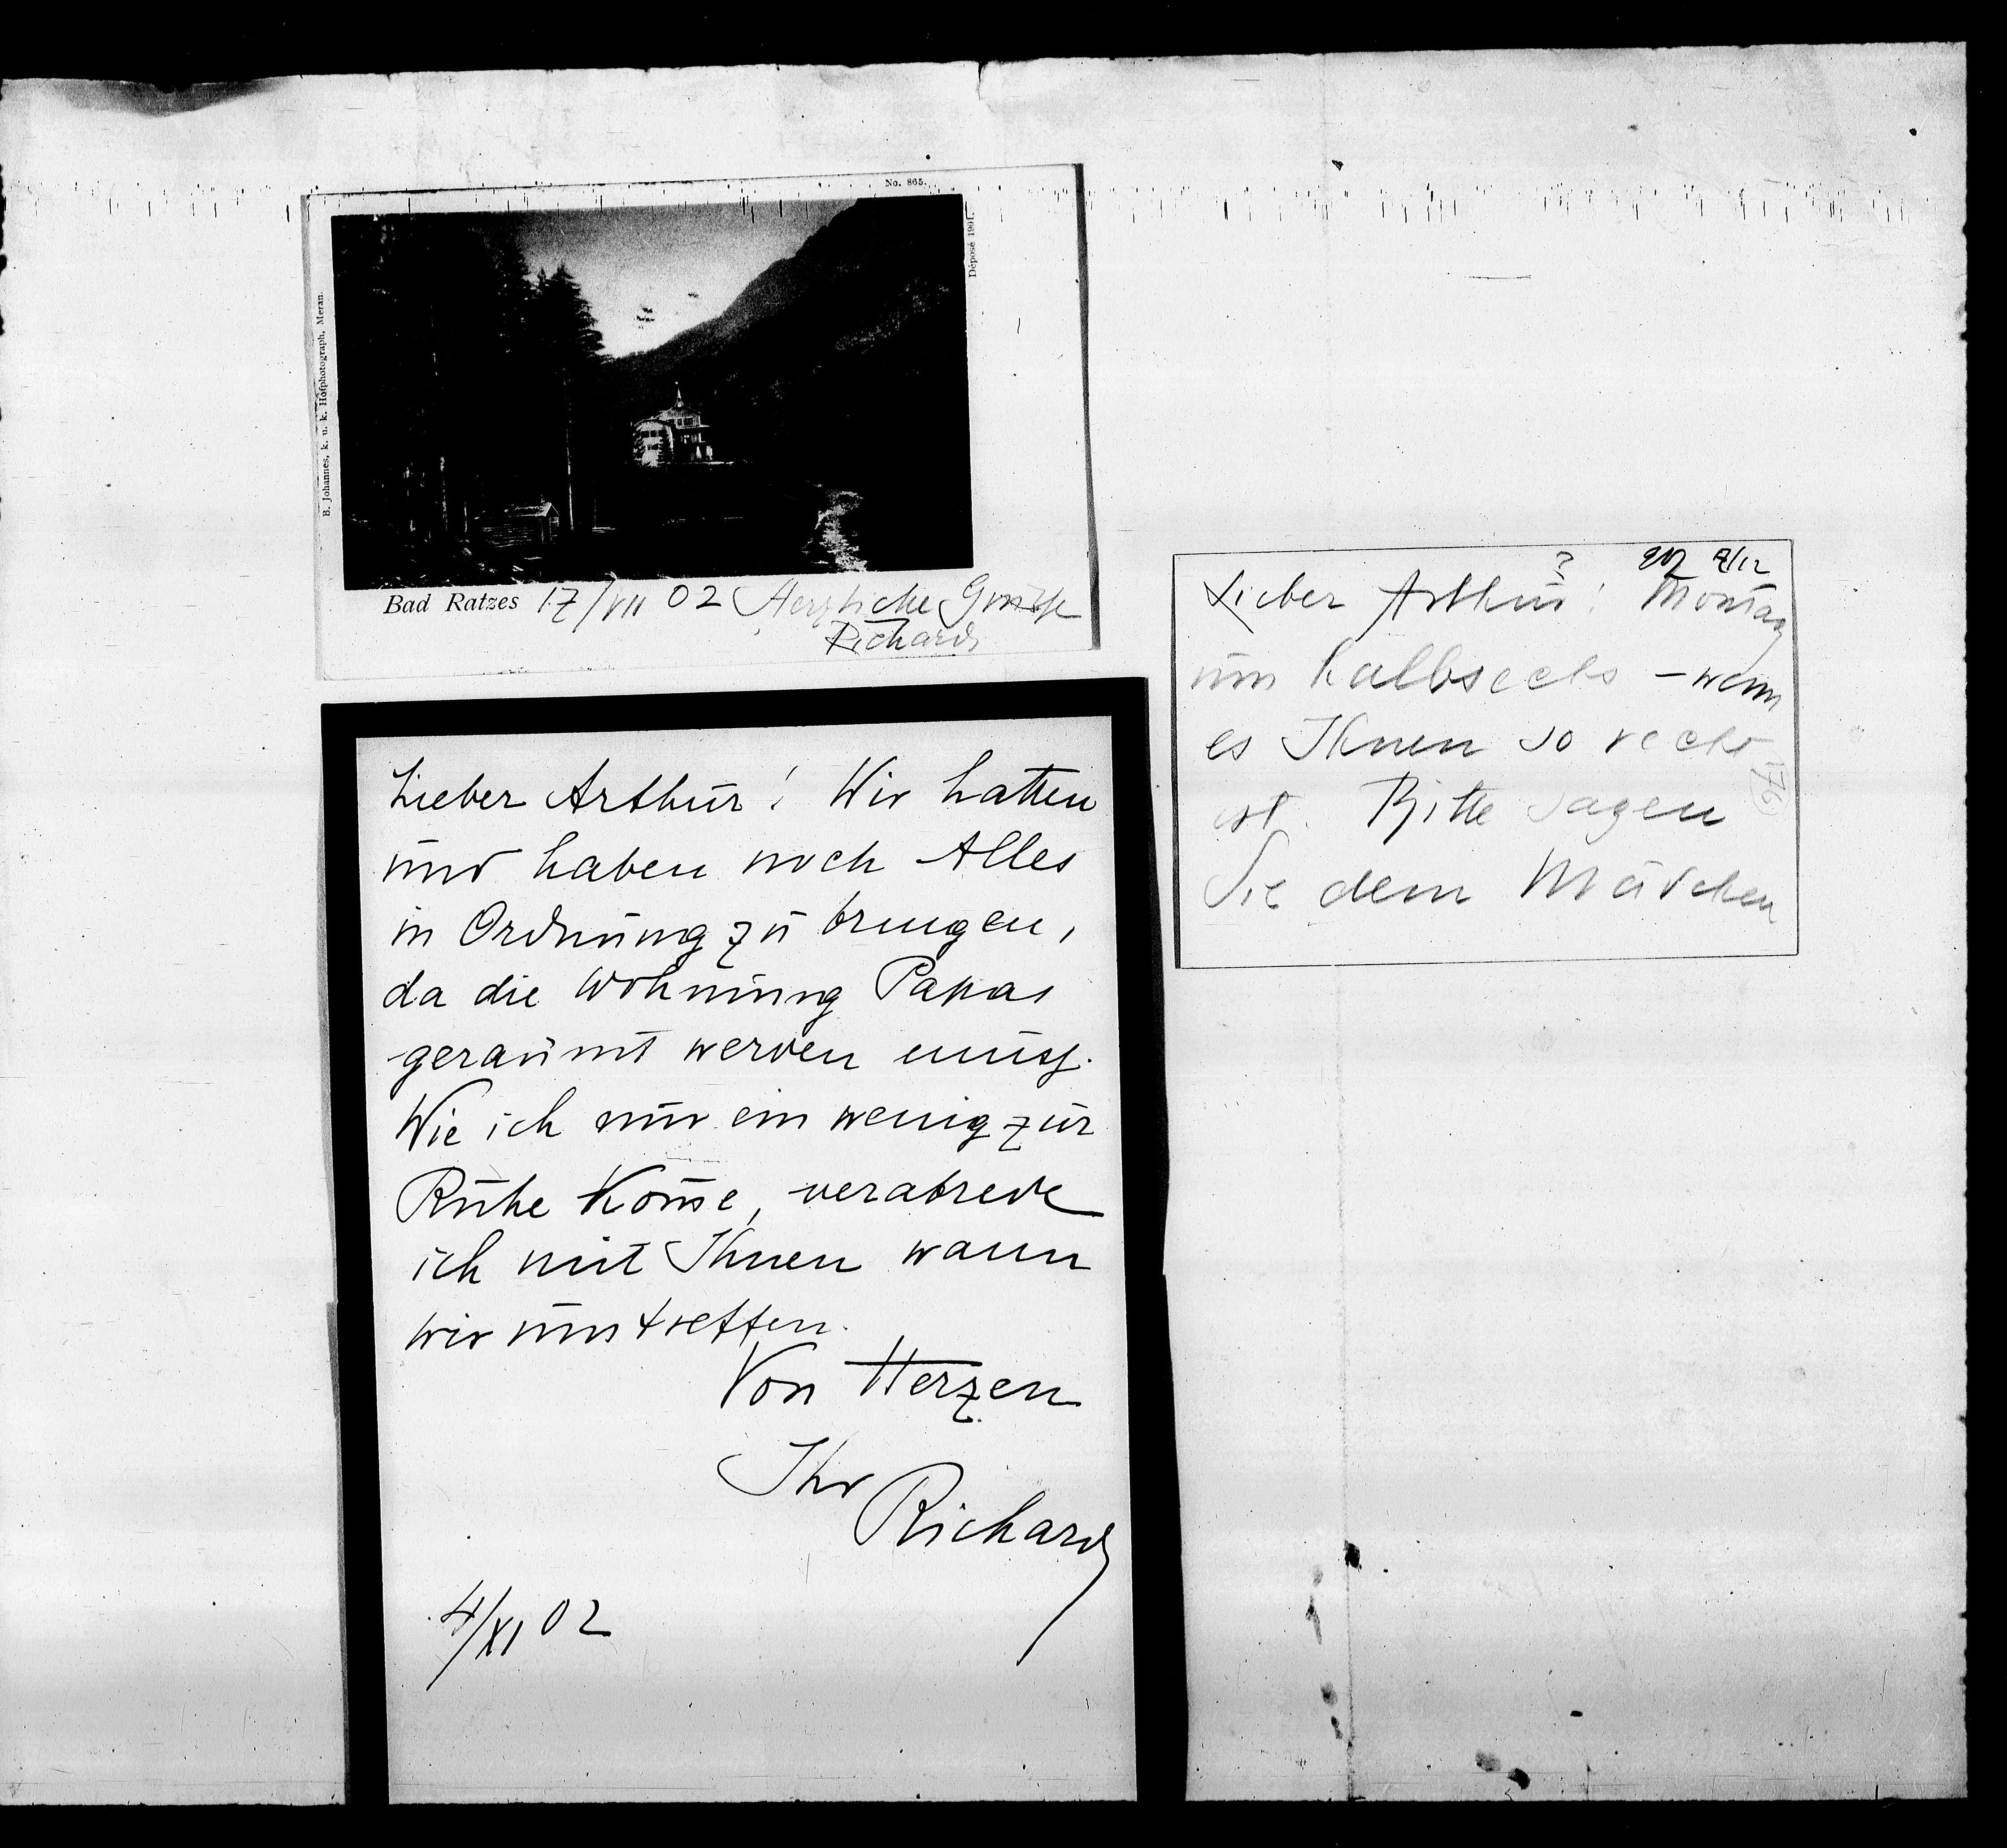 No. 865.
Déposé 1901.
B. Johannes, k. u. k. Hofphotograph, Meran.
Bad Ratzes 17/VII 02 Herzliche Grüße
Richard
Lieber Arthur! Wir hatten
und haben noch Alles
in Ordnung zu bringen,
da die Wohnung Papas
geräumt werden muß.
Wie ich nur ein wenig zur
Ruhe kom̄e, verabrede
ich mit Ihnen wann
wir uns treffen.
Von Herzen
Ihr
Richard
4/XI 02
? 902 /12
Lieber Arthur! Montag
um halbsechs – wenn
es Ihnen so recht
ist. Bitte sagen
Sie dem Mädchen
176